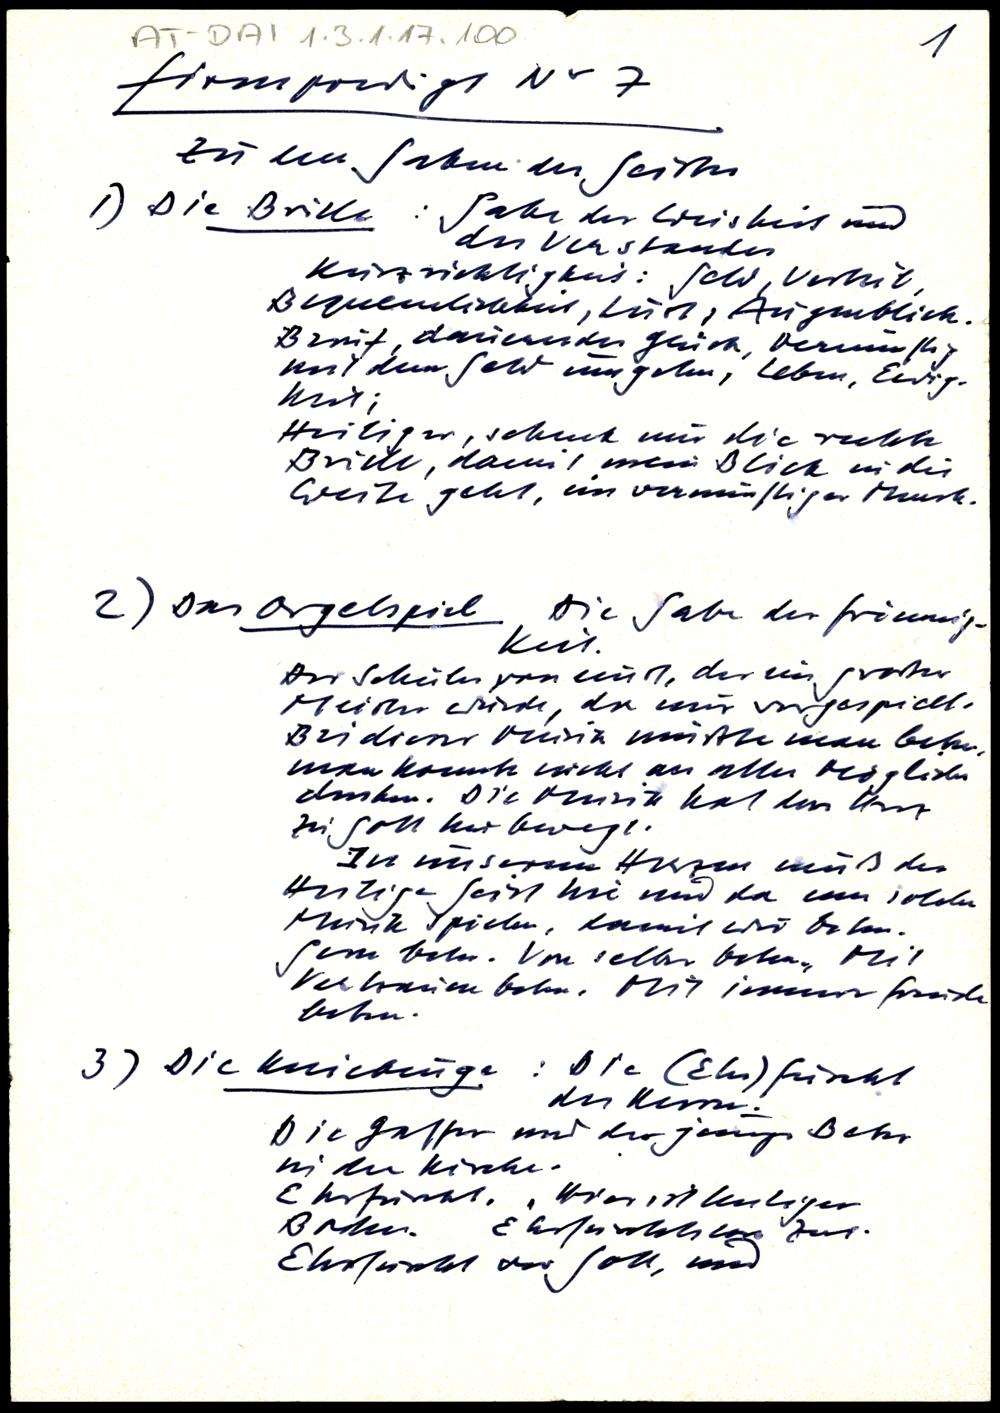 AT-DAI 1.3.1.17.100
1
Firmpredigt Nr 7
Zu den Gaben des Geistes
1) Die Brille : Gabe der Weisheit und
des Verstandes
Kurzsichtigkeit: Geld, Vorteil,
Bequemlichkeit, Lust, Augenblick.
Beruf, dauerndes Glück, vernünftig
mit dem Geld umgehn, Leben, Ewig-
keit;
Heiliger, schenk mir die rechte
Brille, damit mein Blick in die
Weite geht, ein vernünftiger Mensch.
2) Das Orgelspiel Die Gabe der Frömmig-
keit.
Der Schüler von einst, der ein großer
Meister wurde, da mir vorgespielt.
Bei dieser Musik mußte man beten,
man konnte nicht an alles Mögliche
denken. Die Musik hat das Herz
zu Gott hin bewegt.
In unserem Herzen muß der
Heilige Geist hie und da eine solche
Musik spielen, damit wir beten.
Gern beten. Von selber beten, Mit
Vertrauen beten. Mit innerer Freude
beten.
3) Die Kniebeuge : Die (Ehr)furcht
des Herrn.
Die Gaffer und der junge Beter
in der Kirche.
Ehrfurcht. "Hier ist heiliger
Boden. Ehrfurchtslose Zeit.
Ehrfurcht vor Gott, und